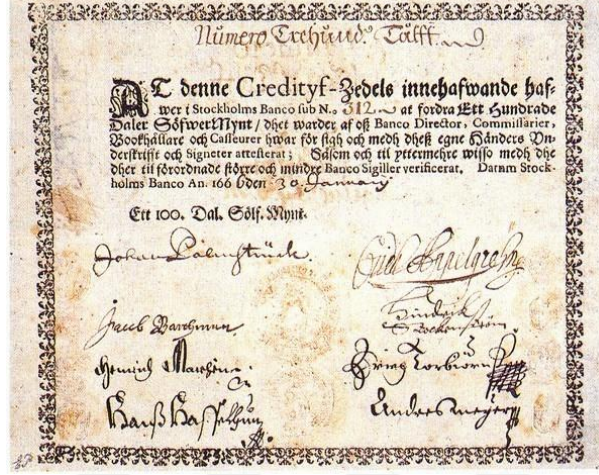 Numero Trehund. Tålff
AT denne Credityf-Zedels innehafwande haf-
wer i Stockholms Banco sub N.o 312. at fordra Ett Hundrade
Daler SölfwerMynt / dhet warder af oß Banco Director, Commissarier,
Bookhållare och Casseurer hwar för sigh och medh dheß egne Händers Vn-
derskrifft och Signeter attesterat; Såsom och til yttermehre wisso medh dhe
dher til förordnade större och mindre Banco Sigiller verificerat. Datum Stock-
holms Banco An. 166 6 den 30. January
Ett 100. Dal. Sölf. Mynt.
Johan Palmstruch.
Jacob Barchman.
Hindrich
Hinrich
Torbiorn
Hanß
Andres Meyer